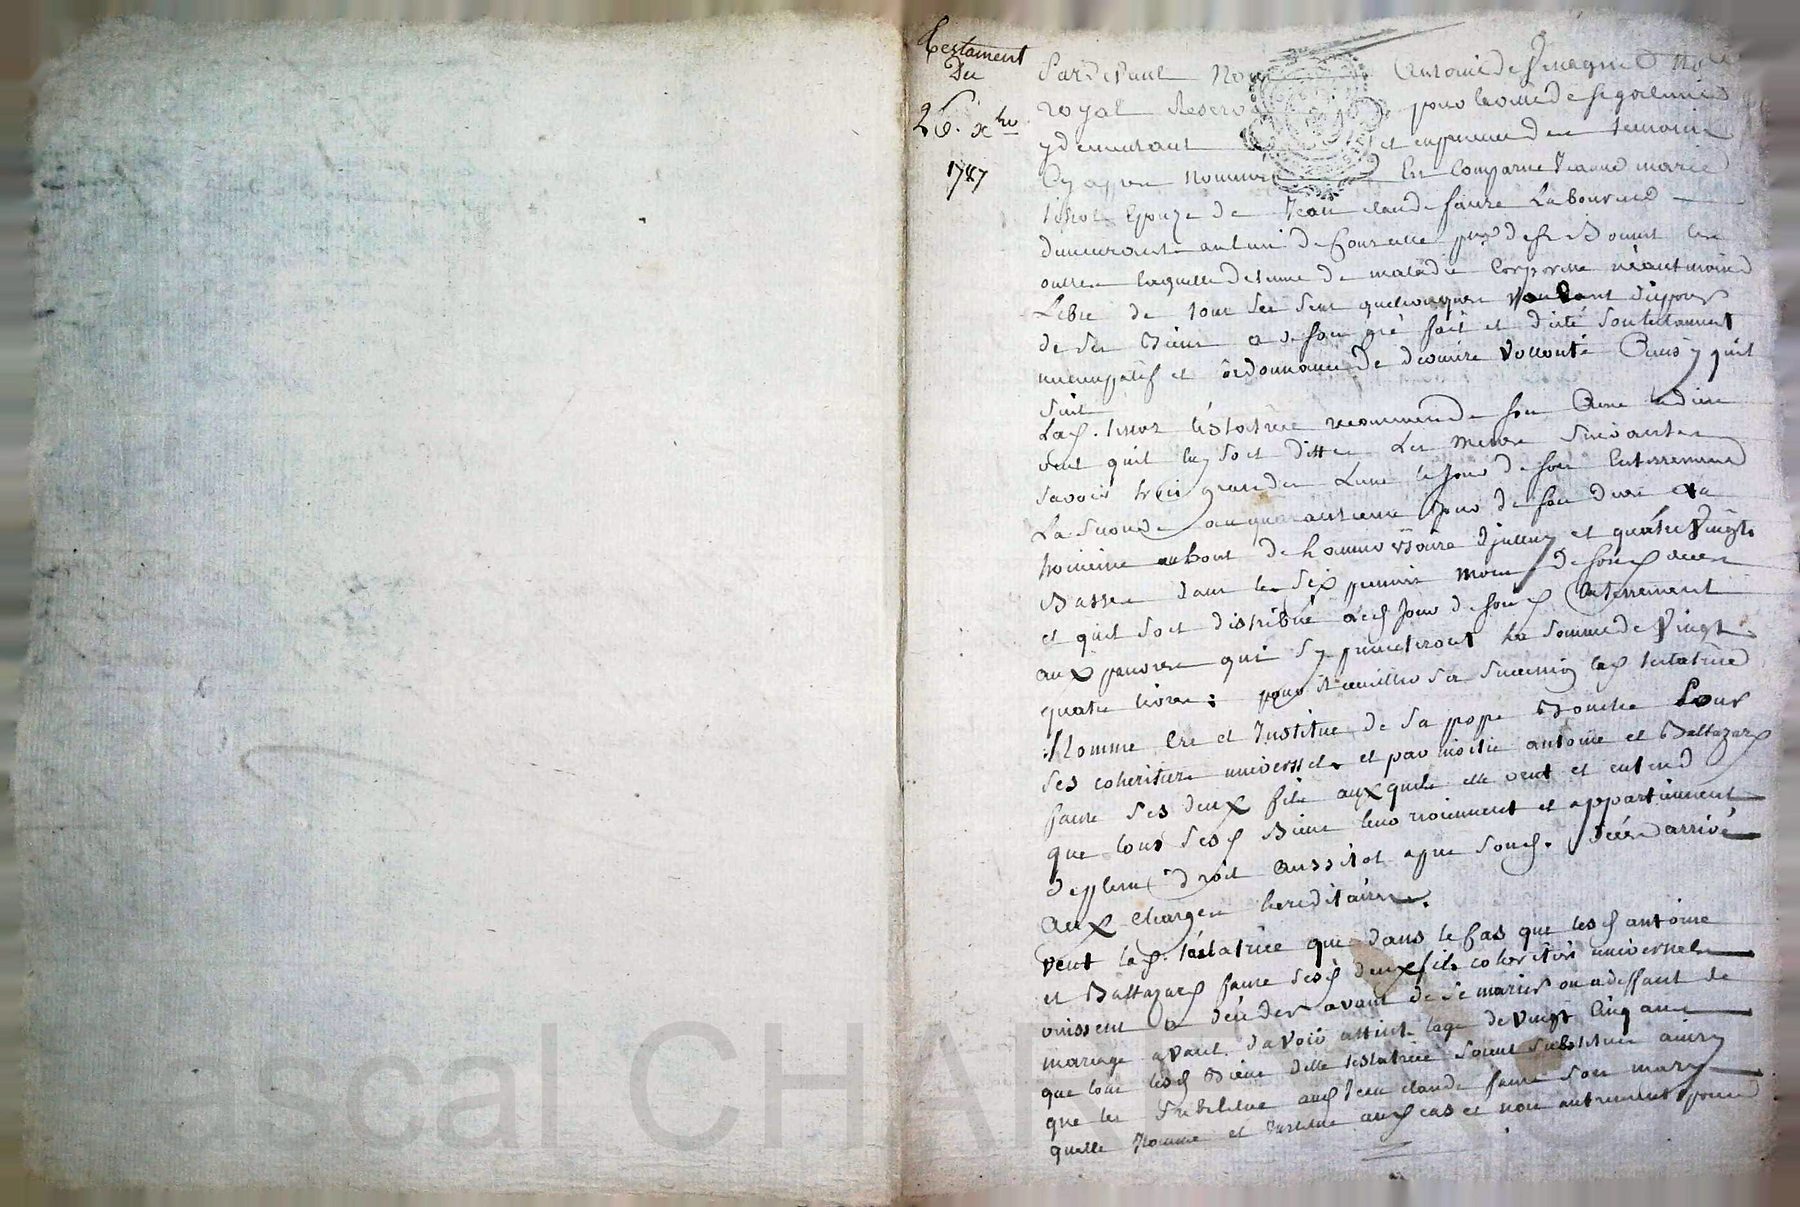 Testament
Du
26. xbre
1787
Pardevant Nous Antoine de
royal Reservé pour la ville de
y demeurant et en presence des temoins
Cy apres nommés Est Comparue Jeanne marie
tissot Epouze de Jean claude faure Laboureur
demeurant au lieu de de St Bonnet les
oulles laquelle detenue de maladie Corporelle néantmoins
Libre de tous ses sens quelconques voulant disposer
de ses Biens a de son gré fait et dicté son testament
nuncupatif et ordonnance De derniere vollonté Ainsy quil
suit
Lad. tissot téstatrice recommande son Ame a dieu
veut quil luy soit dittes Les Messes Suivantes
savoir trois grandes Lune le Jour de son Enterrement
La seconde au quarantieme Jour de son deces & la
troisieme au bout de Lanniversaire Djcelluy et quatre vingts
Basses dans les six premiers mois de sond deces
et quil soit distribué aud Jour de sond Enterrement
aux pauvres qui sy presenteront La somme de vingt
quatre livres : pour Recueillir sa succession lad testatrice
Nomme Cre et Institue de sa pope Bouche Pour
ses coheritiers universels et par moitie antoine et Baltazard
faure ses deux fils auxquels elle veut et entend
que tous sesd Biens leur viennent et appartiennent
de plein droit Aussitot apres sond. décès arrivé
Aux Charges hereditaires.
veut lad. téstatrice que dans le Cas que lesd antoine
et Baltazard faure sesd deux fils coheritiers universels
vinssent a décéder avant de se marier ou a deffaut de
mariage avant davoir attint lage de vingt Cinq ans
que tous lesd Biens delle testatrice soient substitues ainsy
que les substitue aud Jean claude faure son mary
quelle Nomme et Institue aud cas et non autrement pour
Pascal CHAR